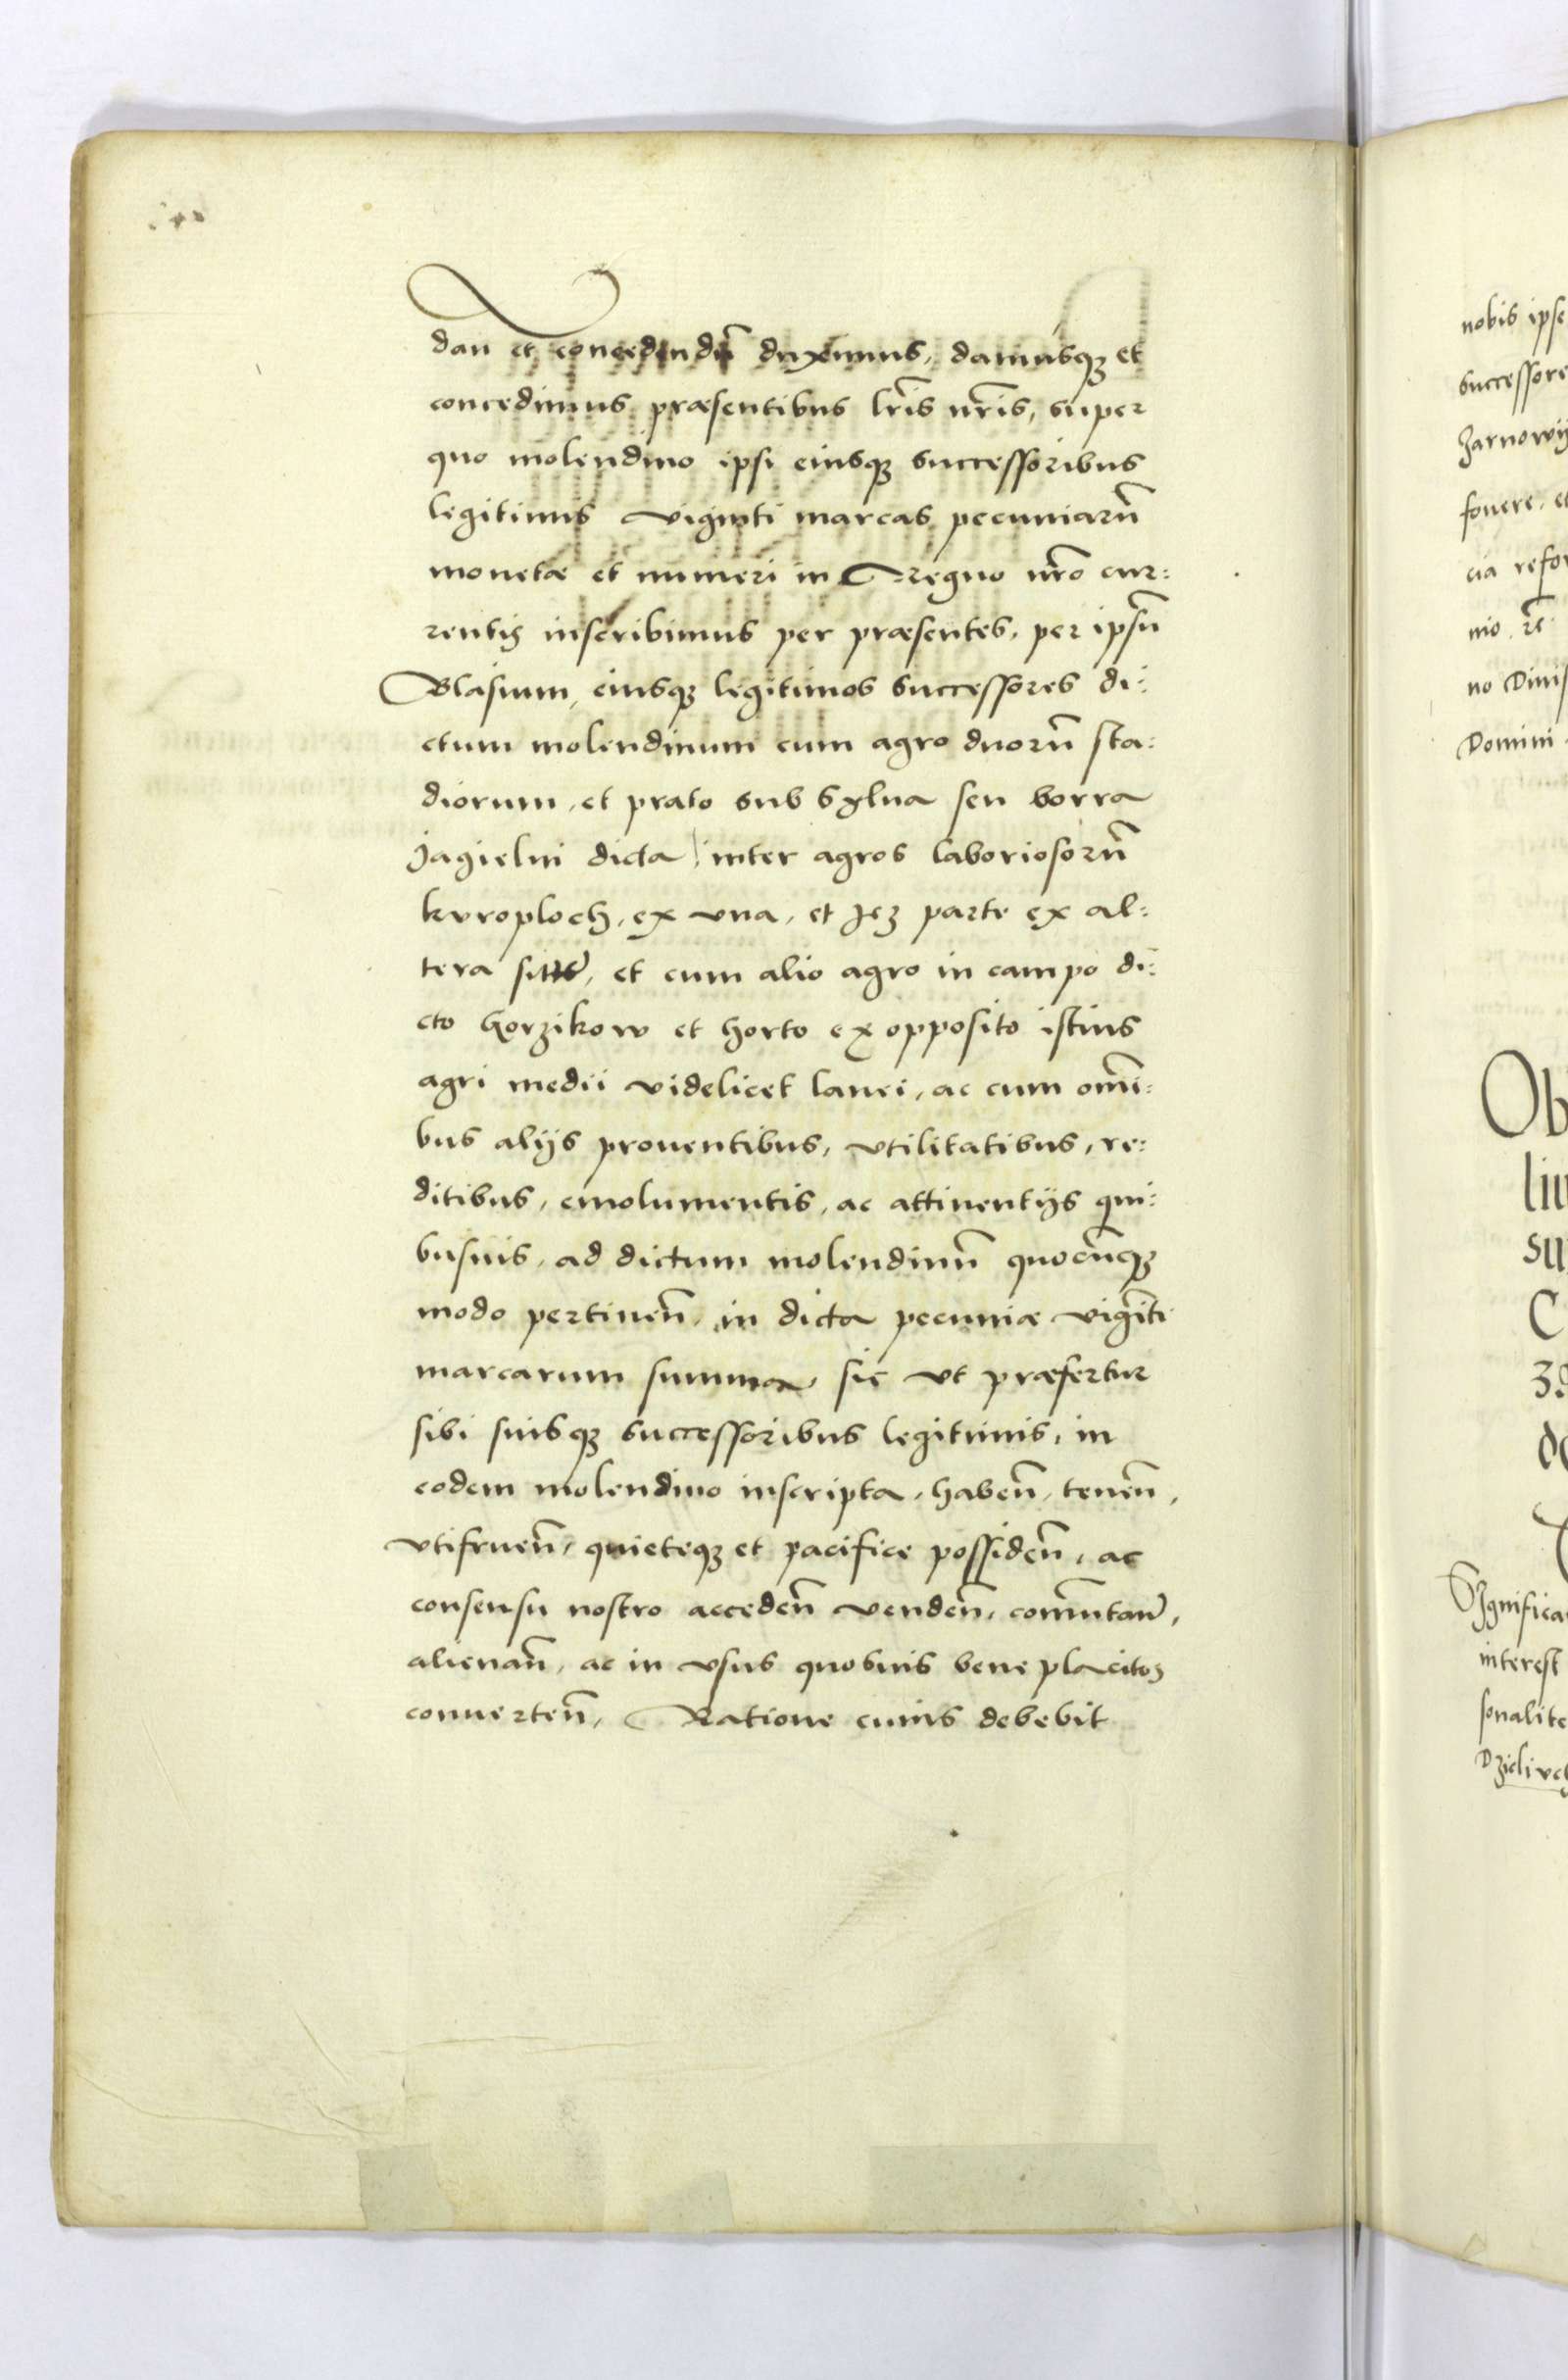 dan et concedendū duximus, damusq₃ et
concedimus præsentibus lr̄is nr̄is, super
quo molendino ipsi eiusq₃ successoribus
legitimis viginti marcas pecuniarū
monetæ et numeri in Regno nr̄o cur:
rentis inscribimus per præsentes, per ipsū
Blasium, eiusq₃ legitimos successores di:
ctum molendinum cum agro duorū sta:
diorum, et prato sub sylua seu borra
Jagielni dicta, inter agros laboriosorū
kvroploch, ex vna, et Jez parte ex al:
tera et cum alio agro in campo di:
cto Gorzikow et horto ex opposito istius
agri medii videlicet lanei, ac cum omī:
bus alijs prouentibus, vtilitatibus, re:
ditibus, emolumentis, ac attinentijs qui:
busuis, ad dictum molendinū quocūq₃
modo pertineñ, in dicta pecuniæ vigīti
marcarum summa, sic vt præfertur
sibi suisq₃ successoribus legitimis, in
eodem molendino inscripta, habeñ, teneñ,
vtifrueñ, quieteq₃ et pacifice possideñ, ac
consensu nostro accedeñ vendeñ, com̄utañ,
alienañ, ac in vsus quosuis bene placitos
conuerteñ, Ratione cuius debebit
nobis ipse
successore
Zarnowij
fouere, et
cia refor
nio re
no Diuis
Domini
Ob
liu
su
C
Significa
interest
sonalite